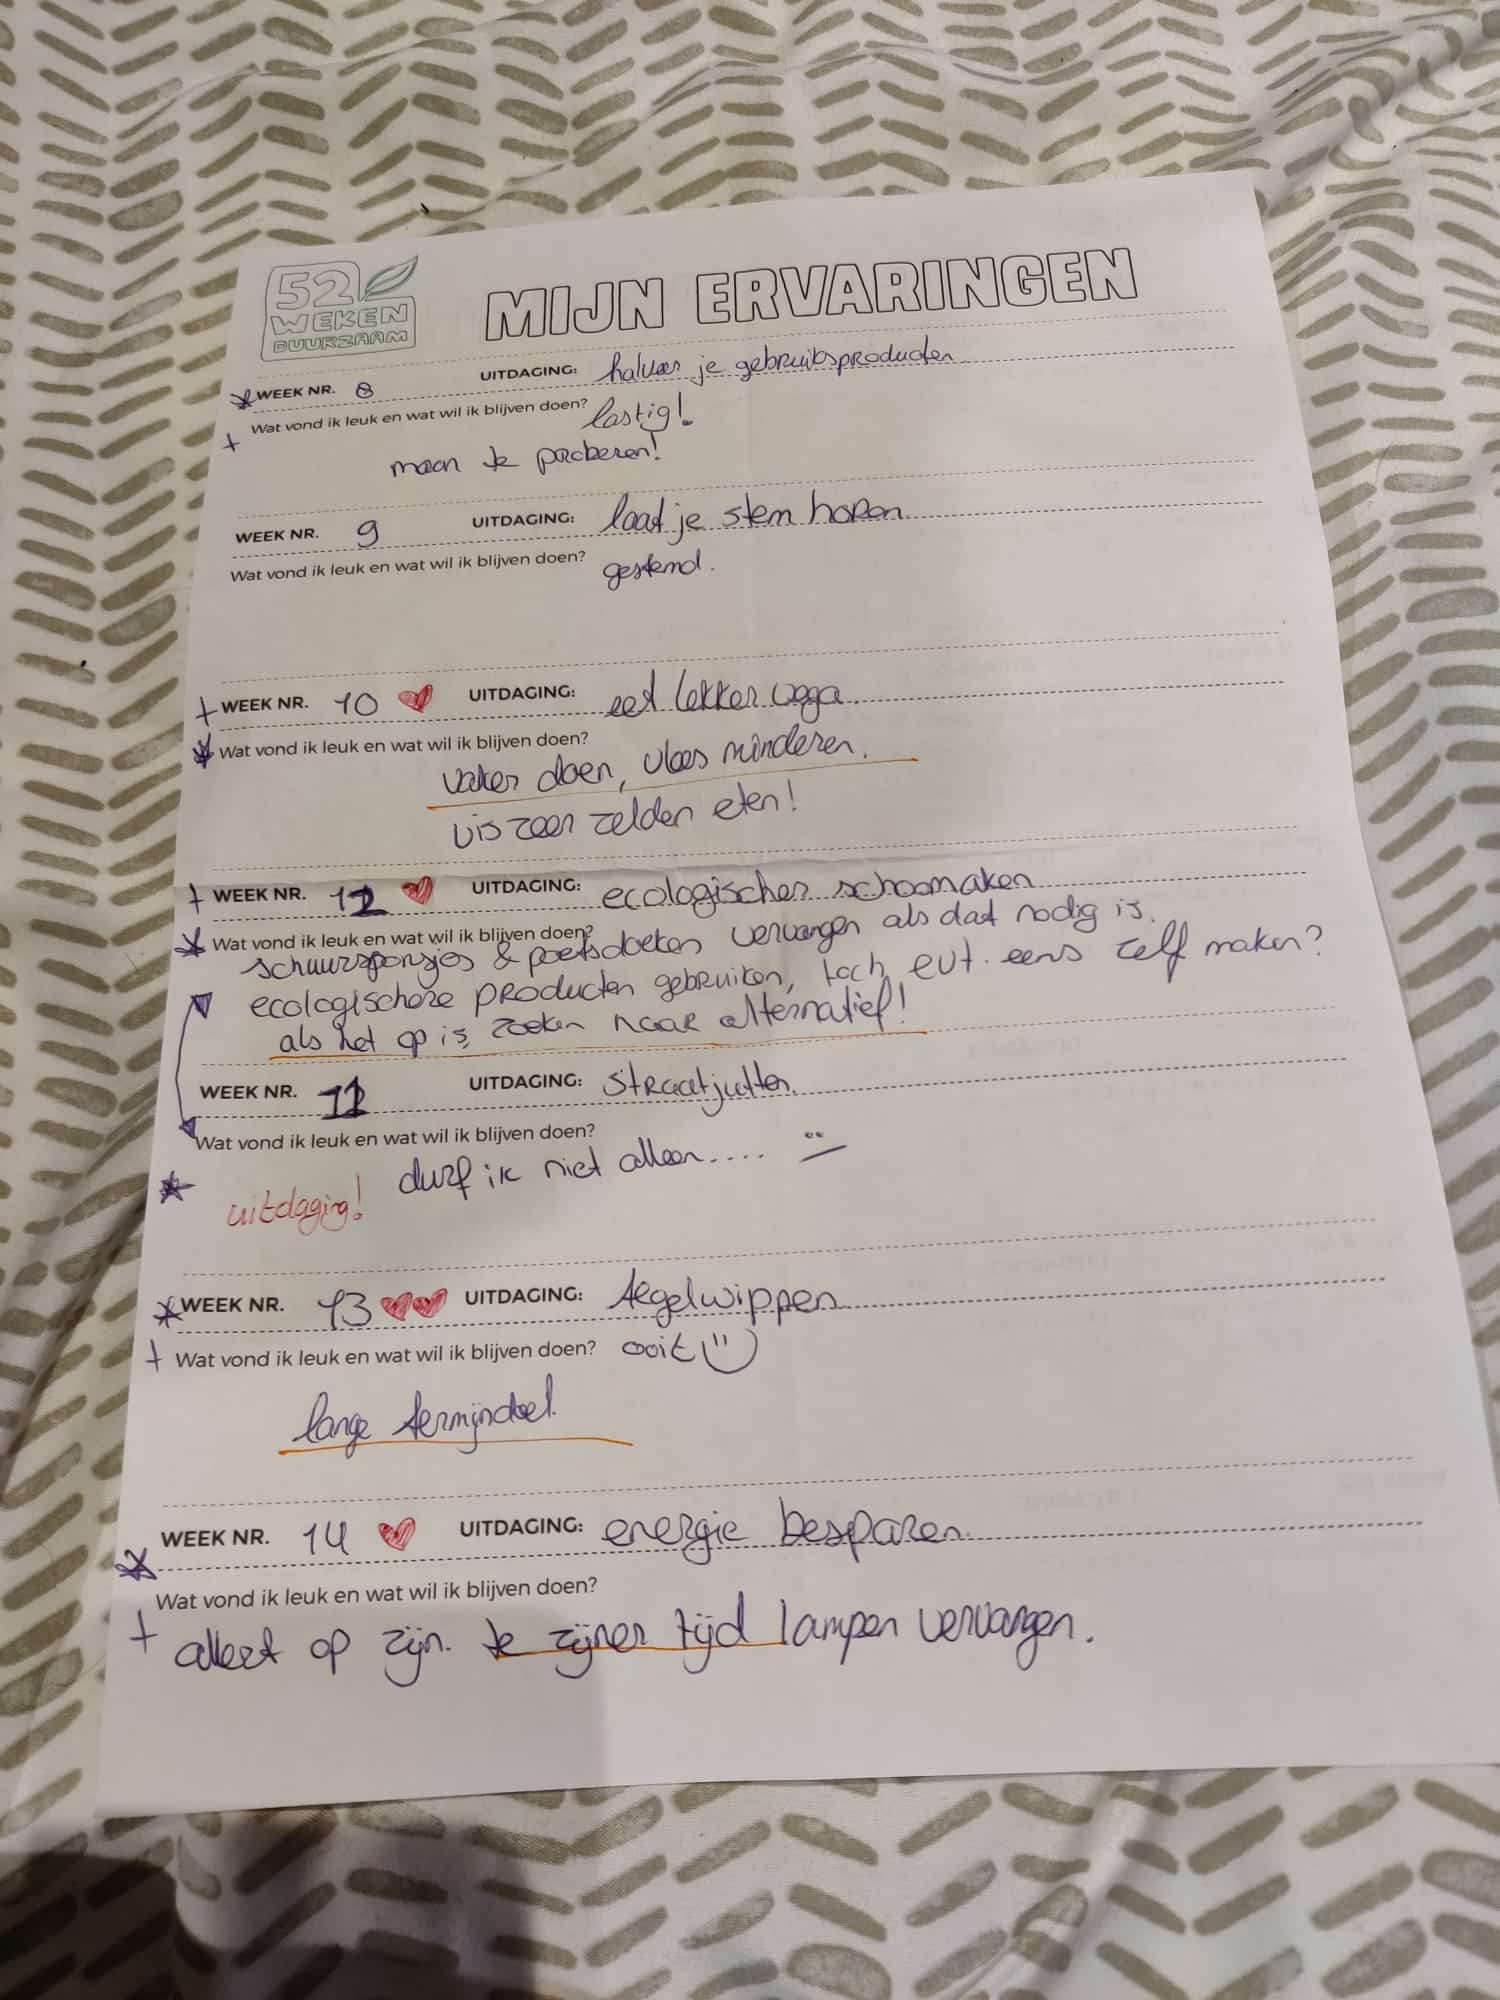 52
WEKEN
DUURZAAM
MIJN ERVARINGEN
WEEK NR. 8 UITDAGING: halveer je gebruiksproducten
Wat vond ik leuk en wat wil ik blijven doen? lastig!
+ maar te proberen!
WEEK NR. 9 UITDAGING: laat je stem horen
Wat vond ik leuk en wat wil ik blijven doen? gestemd.
+ WEEK NR. 10 ❤ UITDAGING: eet lekker vega.
Wat vond ik leuk en wat wil ik blijven doen?
vaker doen, vlees minderen.
vis zeer zelden eten!
+ WEEK NR. 12 ❤ UITDAGING: ecologischer schoomaken
Wat vond ik leuk en wat wil ik blijven doen?
schuursponsjes & poetsdoeken vervangen als dat nodig is.
ecologischere producten gebruiken, toch evt. eens zelf maken?
als het op is, zoeken naar alternatief!
WEEK NR. 11 UITDAGING: straatjutten.
Wat vond ik leuk en wat wil ik blijven doen?
durf ik niet alleen....
uitdaging!
WEEK NR. 13 ❤❤ UITDAGING: tegelwippen
+ Wat vond ik leuk en wat wil ik blijven doen? ooit
lange termijndoel.
WEEK NR. 14 ❤ UITDAGING: energie besparen.
Wat vond ik leuk en wat wil ik blijven doen?
+ alert op zijn. te zijner tijd lampen vervangen.